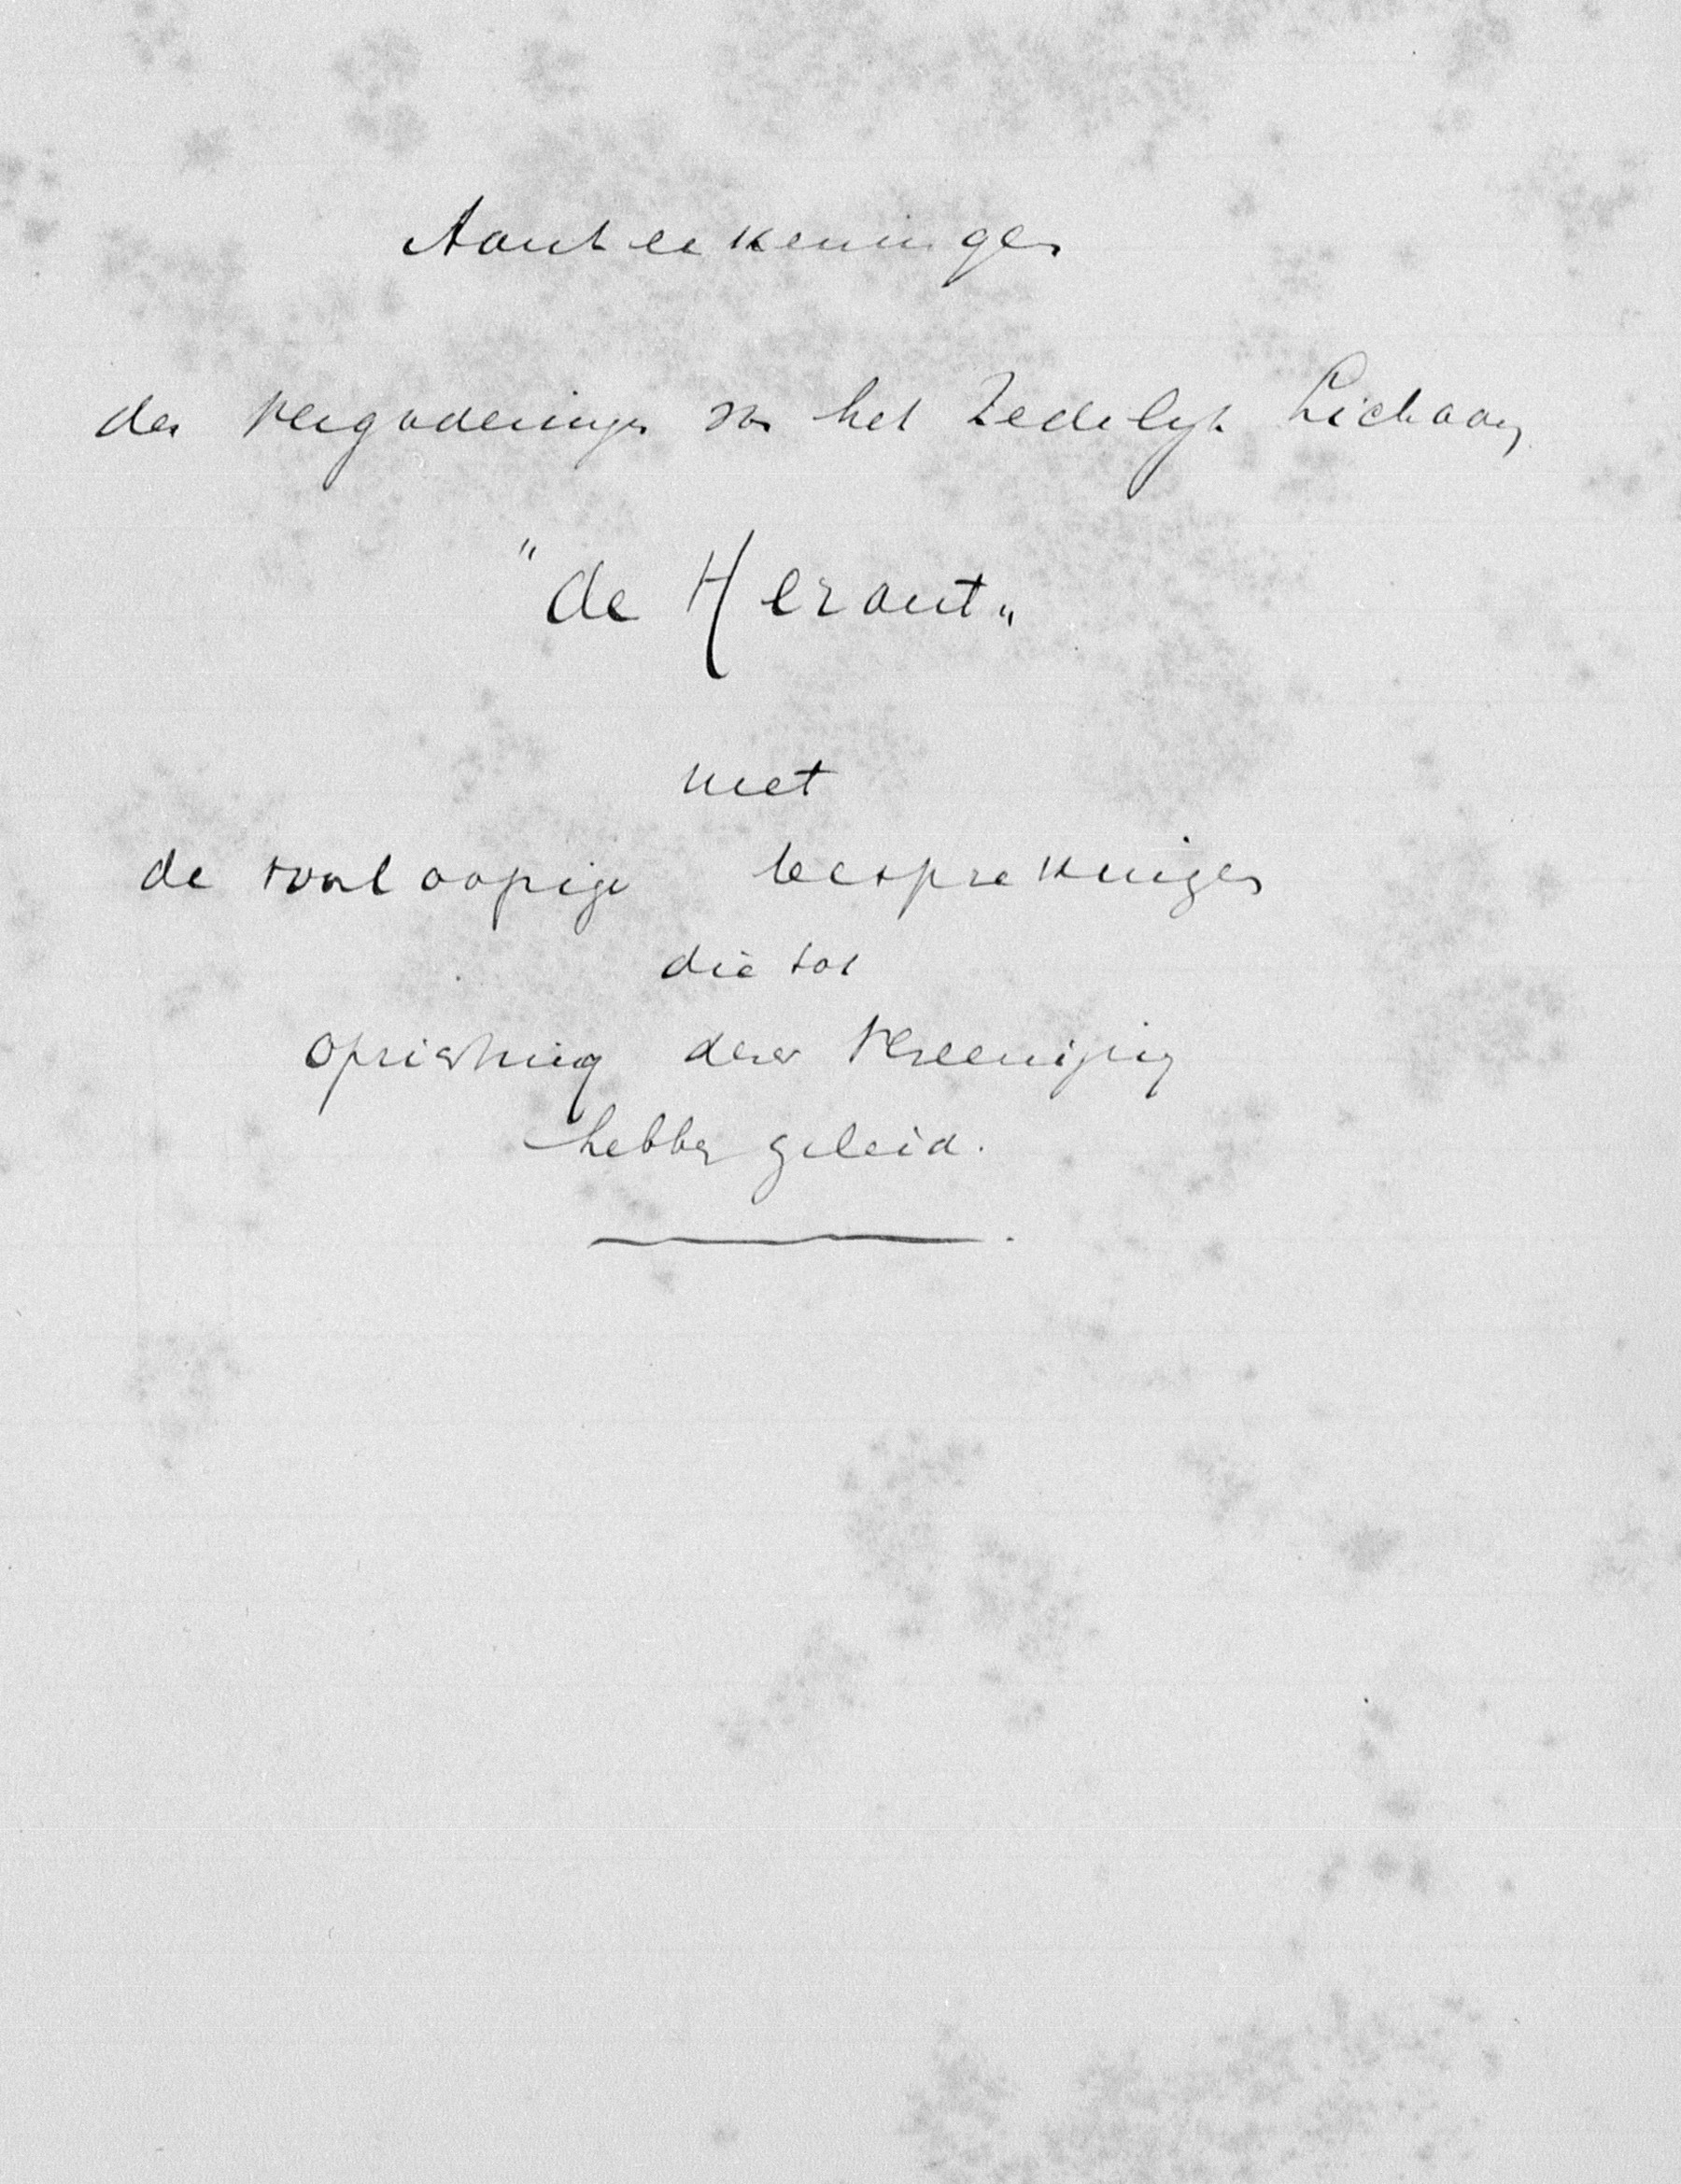 Aanteekeningen
der Vergaderingen van het Zedelijk Lichaam
"de Heraut"
met
de voorloopige besprekingen
die tot
oprichting dezer Vereeniging
hebben geleid.